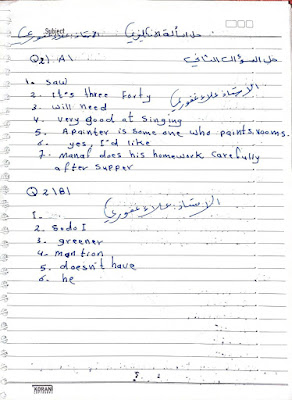 حل أسألة الانكليزي الاستاذ علاء غفوري
Subject
حل السؤال الثاني
Q2/ A\
1. saw
2. It's three forty
الاستاذ علاء غفوري
3. will need
4. very good at singing
5. A painter is some one who paints rooms.
6. yes, I'd like
7. Manal does his homework carefully
after supper
Q2\B\
الاستاذ علاء غفوري
1.
2. So do I
3. greener
4. mention
5. doesn't have
6. he
KORANI